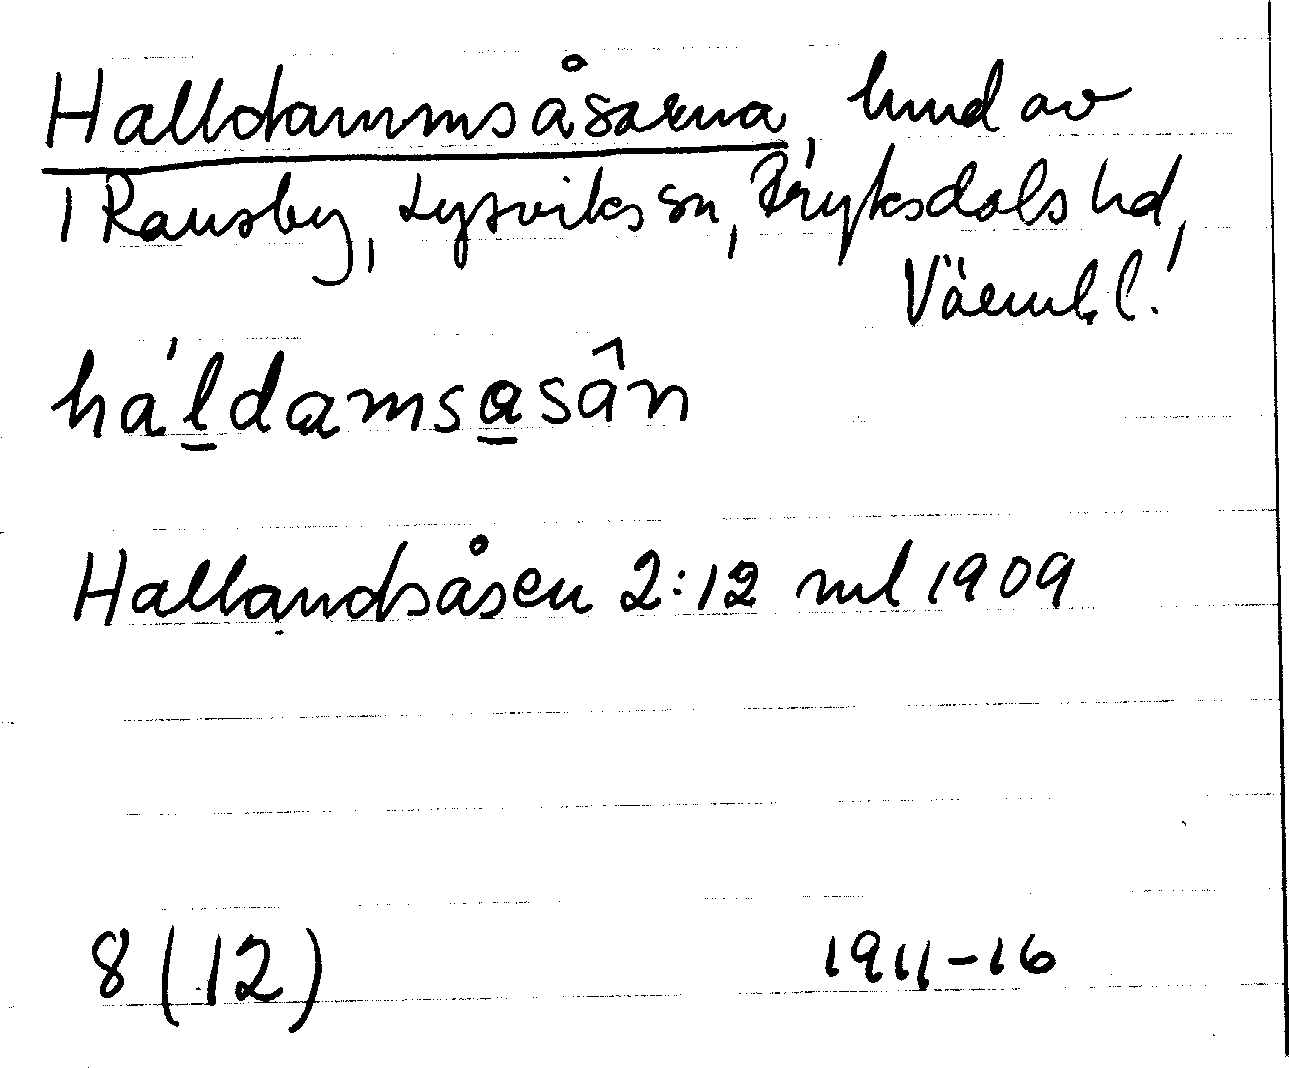 Halldammsåsarna, hmd av
1 Ransby, Lysviks sn, Fryksdals hd,
Värml. l.
ha'ldamsasân
Hallandsåsen 2:12 ml 1909
8 (12) 1911-16